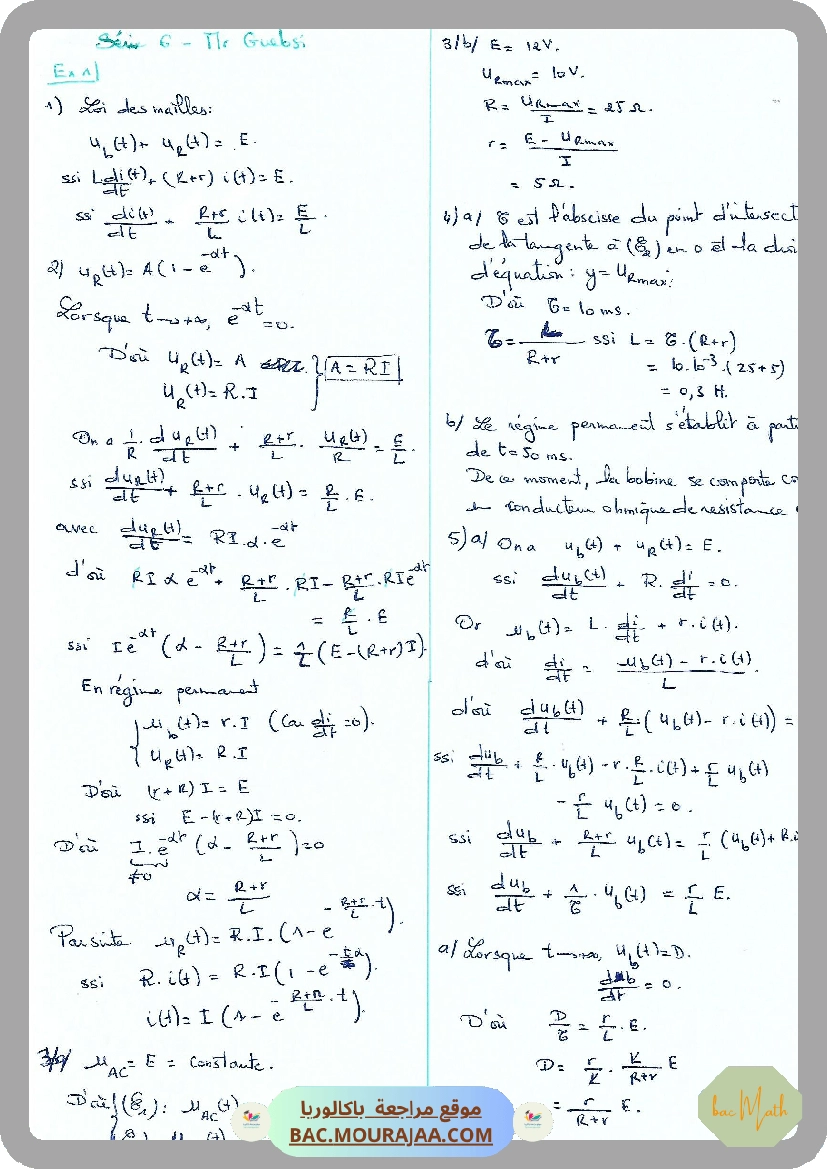 Série 6 - Mr Guebsi
Ex 1
1) Loi des mailles:
u_b(t) + u_R(t) = E.
ssi L di(t)/dt + (R+r) i(t) = E.
ssi di(t)/dt + (R+r)/L i(t) = E/L.
2) u_R(t) = A(1 - e^{-αt}).
Lorsque t→+∞, e^{-αt} = 0.
D'où u_R(t) = A
u_R(t) = R.I
A = RI
On a 1/R . du_R(t)/dt + (R+r)/L . u_R(t)/R = E/L.
ssi du_R(t)/dt + (R+r)/L . u_R(t) = R/L . E.
avec du_R(t)/dt = RI.α.e^{-αt}
d'où RIα e^{-αt} + (R+r)/L . RI - (R+r)/L . RI e^{-αt}
= R/L . E
ssi I e^{-αt} (α - (R+r)/L) = 1/L (E - (R+r)I).
En régime permanent
u_b(t) = r.I (Car di/dt = 0).
u_R(t) = R.I
D'où (r+R) I = E
ssi E - (r+R)I = 0.
D'où I.e^{-αt} (α - (R+r)/L) = 0
≠0
α = (R+r)/L
Par suite u_R(t) = R.I.(1 - e^{-(R+r)/L . t}).
ssi R.i(t) = R.I(1 - e
i(t) = I (1 - e^{-(R+r)/L . t}).
3/a/ u_AC = E = constante.
D'où (ℰ₁): u_AC(t)
3/b/ E = 12V.
U_Rmax = 10V.
R = U_Rmax/I = 25 Ω.
r = (E - U_Rmax)/I
= 5 Ω.
4) a/ τ est l'abscisse du point d'intersect
de la tangente à (ℰ₂) en 0 et la droi
d'équation: y = U_Rmax.
D'où τ = 10 ms.
τ = L/(R+r) ssi L = τ.(R+r)
= 10.10^{-3}.(25+5)
= 0,3 H.
b/ Le régime permanent s'établit à parti
de t = 50 ms.
De ce moment, la bobine se comporte co
un conducteur ohmique de resistance
5) a/ On a u_b(t) + u_R(t) = E.
ssi du_b(t)/dt + R. di/dt = 0.
Or u_b(t) = L. di/dt + r.i(t).
d'où di/dt = (u_b(t) - r.i(t))/L.
d'où du_b(t)/dt + R/L.(u_b(t) - r.i(t)) =
ssi du_b/dt + R/L . u_b(t) - r.R/L.i(t) + r/L u_b(t)
- r/L u_b(t) = 0.
ssi du_b/dt + (R+r)/L u_b(t) = r/L (u_b(t) + R.i
ssi du_b/dt + 1/τ . u_b(t) = r/L E.
a/ Lorsque t→+∞, u_b(t) = D.
du_b/dt = 0.
D'où D/τ = r/L . E.
D = r/L . L/(R+r) E
= r/(R+r) E.
موقع مراجعة باكالوريا
BAC.MOURAJAA.COM
bac Math